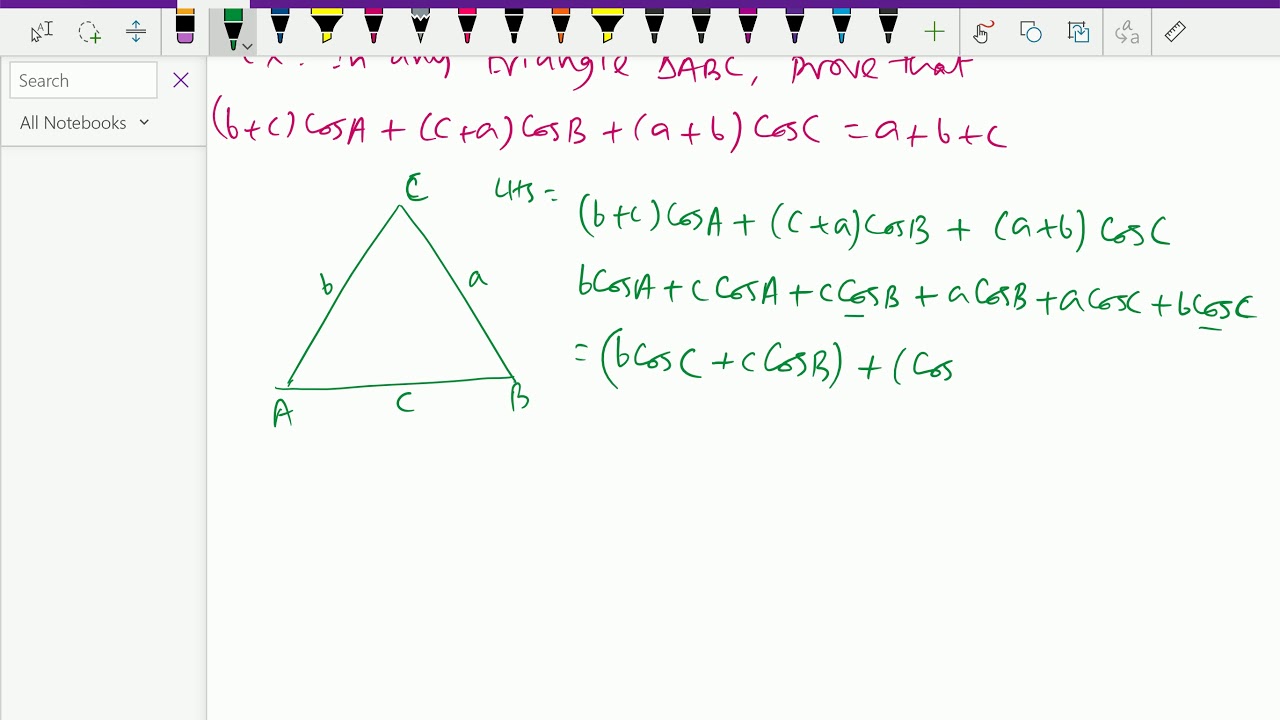 Search
All Notebooks
Ex: In any triangle ΔABC, prove that
(b+c) CosA + (C+a) CosB + (a+b) CosC = a+b+c
C
b
a
A
C
B
LHS =
(b+c) CosA + (C+a) CosB + (a+b) CosC
bCosA + cCosA + cCosB + aCosB + aCosC + bCosC
= (bCosC + cCosB) + (Cos